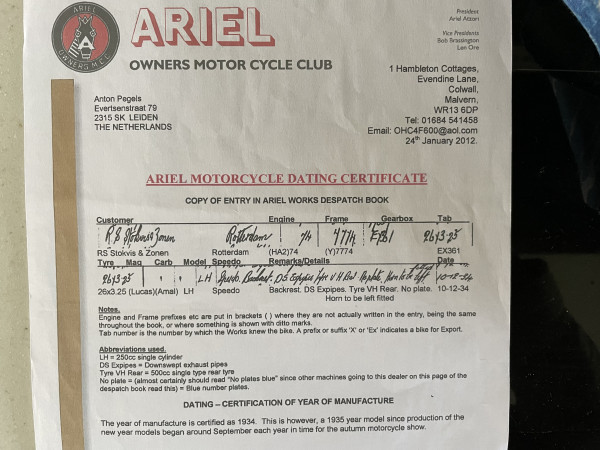 ARIEL
OWNERS M.C.C.
ARIEL
OWNERS MOTOR CYCLE CLUB
President
Ariel Atzori
Vice Presidents
Bob Brassington
Len Ore
1 Hambleton Cottages,
Evendine Lane,
Colwall,
Malvern,
WR13 6DP
Tel: 01684 541458
Email: OHC4F600@aol.com
24th January 2012.
Anton Pegels
Evertsenstraat 79
2315 SK LEIDEN
THE NETHERLANDS
ARIEL MOTORCYCLE DATING CERTIFICATE
COPY OF ENTRY IN ARIEL WORKS DESPATCH BOOK
Customer Engine Frame Gearbox Tab
R.S Stokvis & Zonen Rotterdam 74 7774 Ex361 26x3.25
RS Stokvis & Zonen Rotterdam (HA2)74 (Y)7774 EX361
Tyre Mag Carb Model Speedo Remarks/Details Date
26x3.25 " " LH Speedo Backrest. DS Expipes Tyre VH Rear No plate. Horn to be left 10-12-34
26x3.25 (Lucas)(Amal) LH Speedo Backrest. DS Expipes. Tyre VH Rear. No plate. 10-12-34
Horn to be left fitted
Notes.
Engine and Frame prefixes etc are put in brackets ( ) where they are not actually written in the entry, being the same
throughout the book, or where something is shown with ditto marks.
Tab number is the number by which the Works knew the bike. A prefix or suffix 'X' or 'Ex' indicates a bike for Export.
Abbreviations used.
LH = 250cc single cylinder
DS Expipes = Downswept exhaust pipes
Tyre VH Rear = 500cc single type rear tyre
No plate = (almost certainly should read "No plates blue" since other machines going to this dealer on this page of the
despatch book read this) = Blue number plates.
DATING – CERTIFICATION OF YEAR OF MANUFACTURE
The year of manufacture is certified as 1934. This is however, a 1935 year model since production of
the new year models began around September each year in time for the autumn motorcycle show.